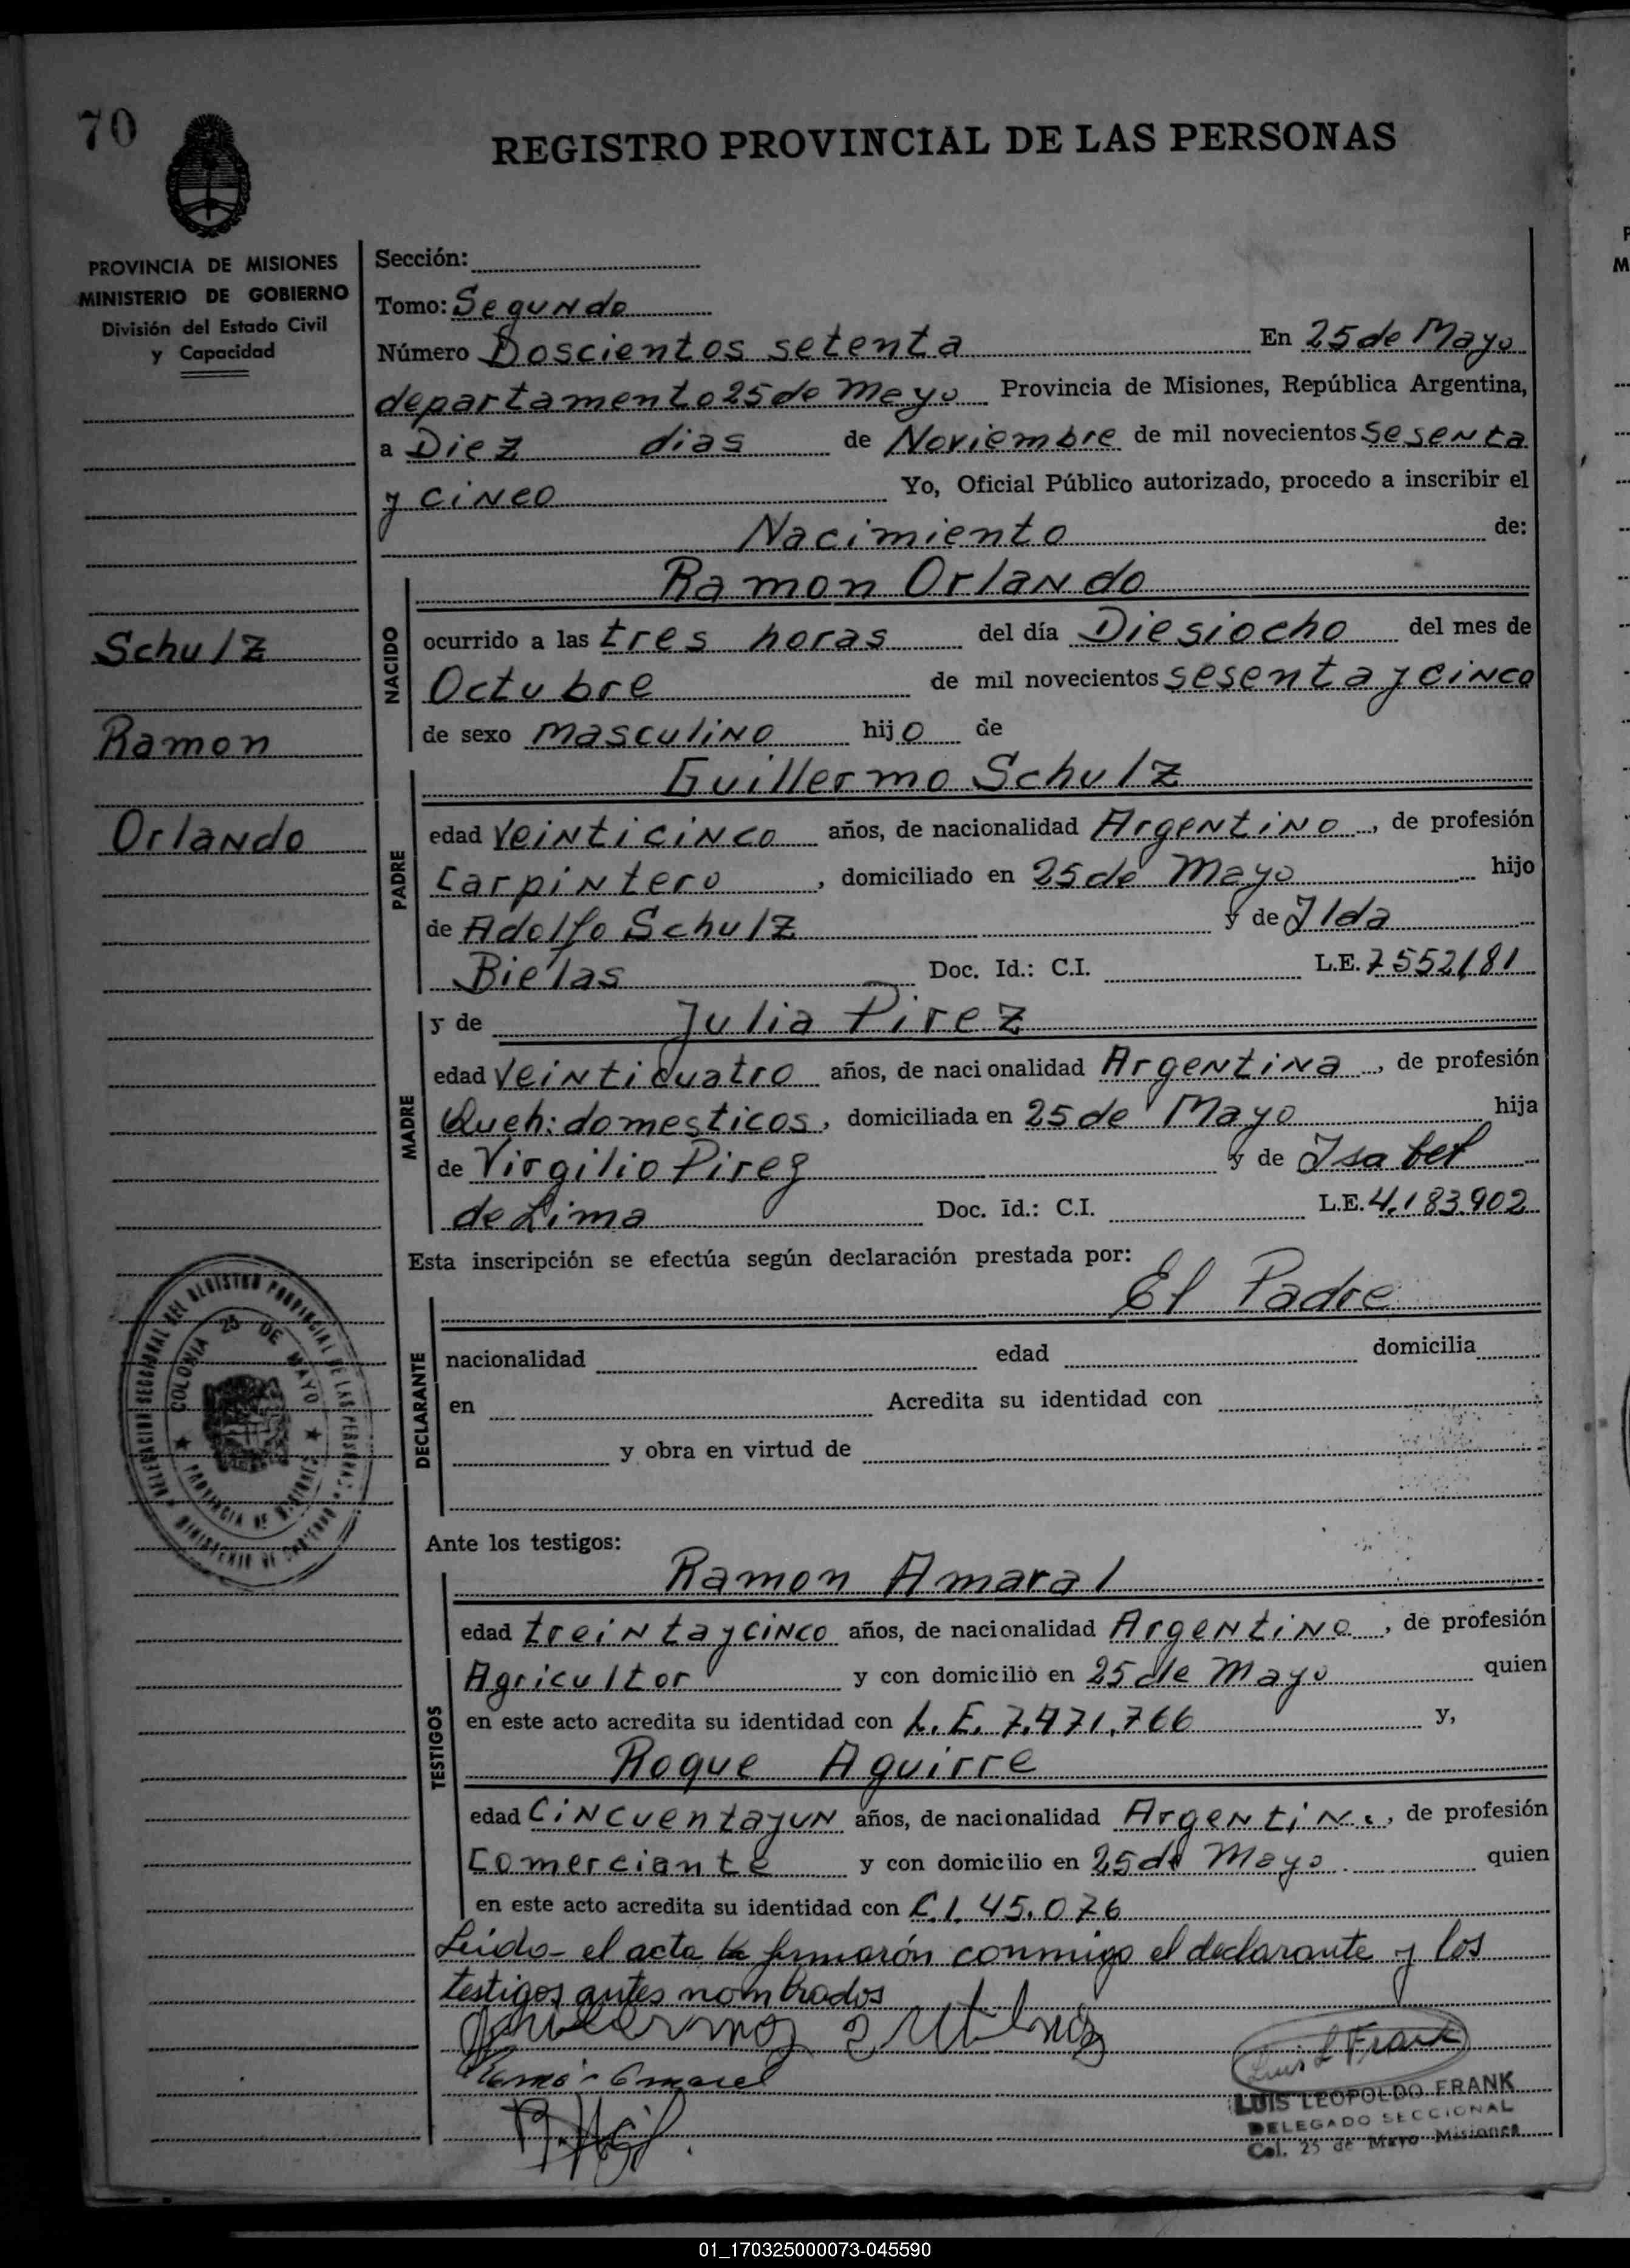 70
REGISTRO PROVINCIAL DE LAS PERSONAS
PROVINCIA DE MISIONES
MINISTERIO DE GOBIERNO
División del Estado Civil
y Capacidad
Schulz
Ramon
Orlando
Sección:
Tomo: Segundo
Número Doscientos setenta En 25 de Mayo
departamento 25 de Mayo Provincia de Misiones, República Argentina,
a Diez dias de Noviembre de mil novecientos sesenta
y cinco Yo, Oficial Público autorizado, procedo a inscribir el
Nacimiento de:
Ramon Orlando
NACIDO
ocurrido a las tres horas del día Diesiocho del mes de
Octubre de mil novecientos sesenta y cinco
de sexo masculino hijo de
Guillermo Schulz
PADRE
edad veinticinco años, de nacionalidad Argentino, de profesión
Carpintero, domiciliado en 25 de Mayo hijo
de Adolfo Schulz y de Ilda
Bielas Doc. Id.: C.I. L.E. 7552181
y de Julia Pirez
MADRE
edad veinticuatro años, de nacionalidad Argentina, de profesión
Queh: domesticos, domiciliada en 25 de Mayo hija
de Virgilio Pirez y de Isabel
de Lima Doc. Id.: C.I. L.E. 4.183.902
Esta inscripción se efectúa según declaración prestada por:
El Padre
DECLARANTE
nacionalidad edad domicilia
en Acredita su identidad con
y obra en virtud de
DELEGACION SECCIONAL DEL REGISTRO PROVINCIAL DE LAS PERSONAS
MINISTERIO DE GOBIERNO
COLONIA 25 DE MAYO
PROVINCIA DE MISIONES
Ante los testigos:
Ramon Amaral
TESTIGOS
edad treinta y cinco años, de nacionalidad Argentino, de profesión
Agricultor y con domicilio en 25 de Mayo quien
en este acto acredita su identidad con L.E. 7.471.766 y,
Roque Aguirre
edad Cincuenta y un años, de nacionalidad Argentin., de profesión
Comerciante y con domicilio en 25 de Mayo quien
en este acto acredita su identidad con C.I. 45.076
Leido el acta firmarón conmigo el declarante y los
testigos antes nombrados
Luis L Frank
LUIS LEOPOLDO FRANK
DELEGADO SECCIONAL
Col. 25 de Mayo Misiones
01_170325000073-045590